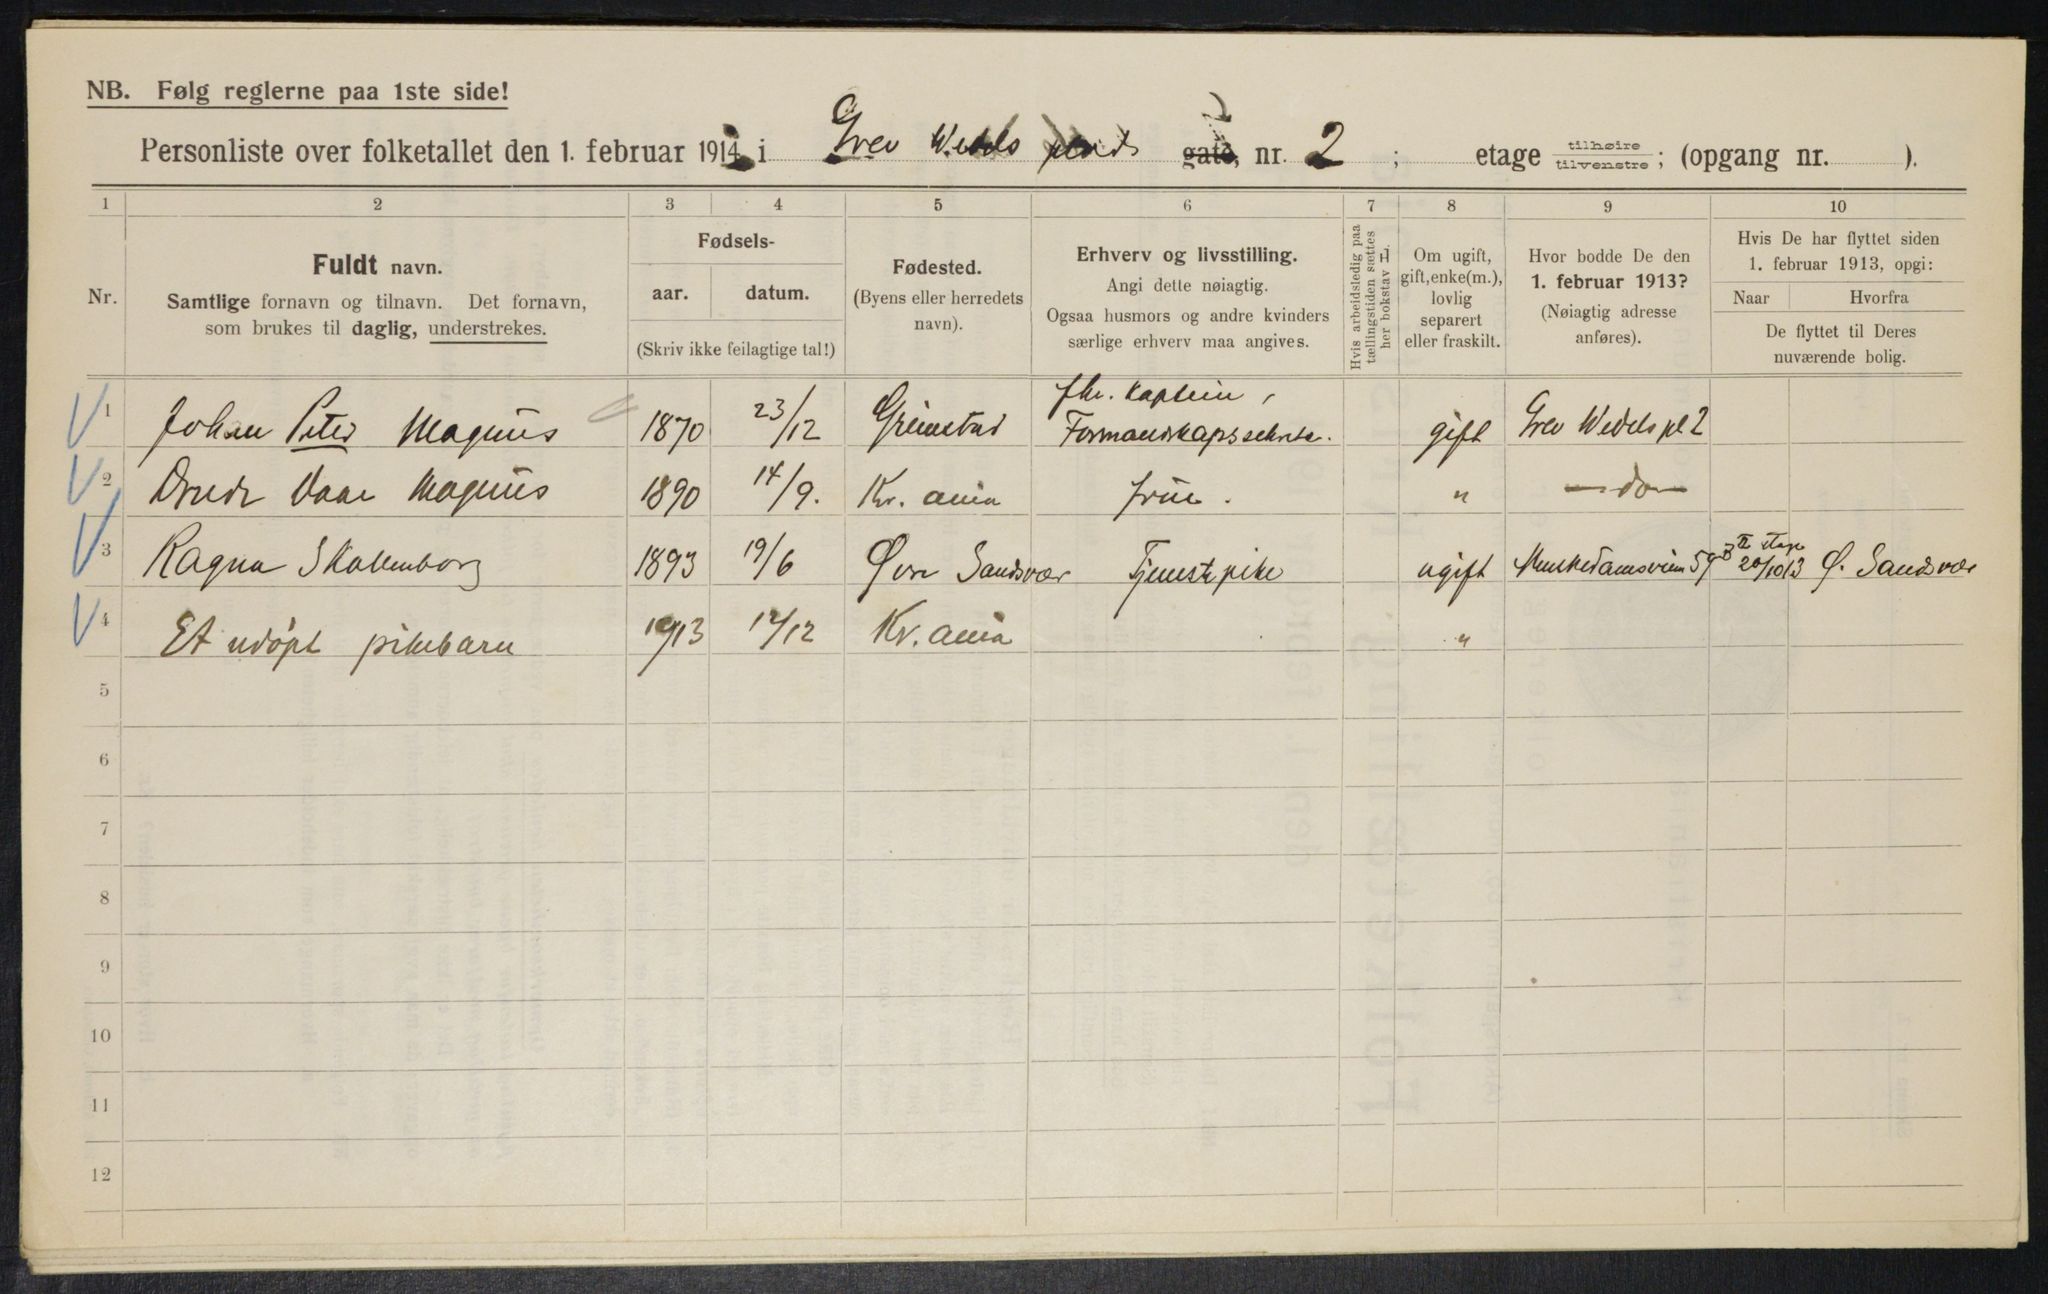 NB. Følg reglerne paa 1ste side!
Personliste over folketallet den 1. februar 1914 i Grev Wedels plads gate, nr. 2 ; etage tilhøire tilvenstre ; (opgang nr. ).
1 2 3 4 5 6 7 8 9 10
Nr.
Fuldt navn.
Samtlige fornavn og tilnavn. Det fornavn,
som brukes til daglig, understrekes.
Fødsels-
aar. datum.
(Skriv ikke feilagtige tal!)
Fødested.
(Byens eller herredets
navn).
Erhverv og livsstilling.
Angi dette nøiagtig.
Ogsaa husmors og andre kvinders
særlige erhverv maa angives.
Hvis arbeidsledig paa
tællingstiden sættes
her bokstav H.
Om ugift,
gift, enke(m.),
lovlig
separert
eller fraskilt.
Hvor bodde De den
1. februar 1913?
(Nøiagtig adresse
anføres).
Hvis De har flyttet siden
1. februar 1913, opgi:
Naar Hvorfra
De flyttet til Deres
nuværende bolig.
1 Johan Peter Magnus 1870 23/12 Grimstad fhr. Kaptein, Formandskapssekretr. gift Grev Wedels pl 2
2 Vaar Magnus 1890 14/9. Kr. ania frue. " — do —
3 Ragna Skollenborg 1893 19/6 Øvre Sandsvær Tjenestepike ugift Munkedamsveien 59B II etage 20/10 13 Ø. Sandsvær
4 Et udøpt pikebarn 1913 12/12 Kr. ania "
5
6
7
8
9
10
11
12